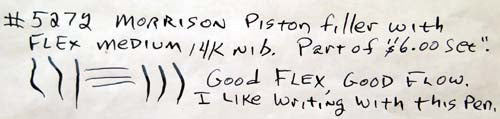 #5272 MORRISON Piston filler with
FLEX MEDIUM 14K NIB. Part of "$6.00 Set".
GOOD FLEX, GOOD FLOW.
I LIKE WRITING WITH THIS PEN.